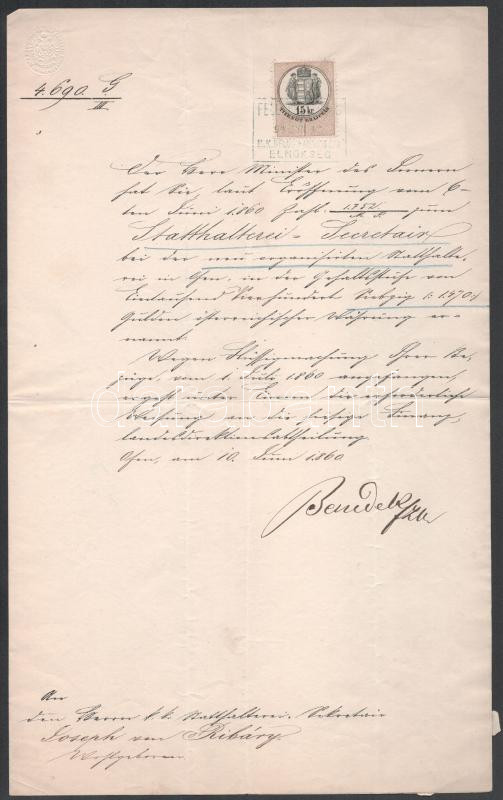 4.690. G
III.
15 kr
ELNÖKSÉG
Der Herr Minister des Innern
hat Sie, laut Eröffnung vom 6-
ten Juni 1860 Zahl: 1752 zum
M. I.
Statthalterei-Secretair
bei der neu organisirten Statthalte-
rei in Ofen, in der Gehaltsstufe von
Eintausend Vierhundert Siebzig /: 1470 :/
Gulden österreichischer Währung er-
nannt.
Wegen Flüssigmachung Ihrer Be-
züge, vom 1. Juli 1860 angefangen,
ergeht unter Einem die erforderliche
Weisung an die hiesige Finanz-
landesdirektionsabtheilung.
Ofen, am 10. Juni 1860
Benedek
An
den Herrn k. k. Statthalterei-Sekretair
Joseph von Ribáry
Wohlgeboren
Darabanth